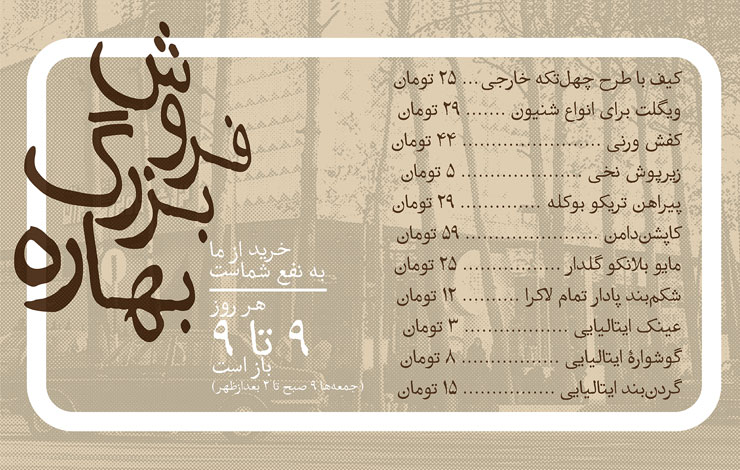 فروش
بزرگ
بهاره
خرید از ما
به نفع شماست
هر روز
۹ تا ۹
باز است
(جمعه‌ها ۹ صبح تا ۲ بعدازظهر)
کیف با طرح چهل‌تکه خارجی... ۲۵ تومان
ویگلت برای انواع شنیون ....... ۲۹ تومان
کفش ورنی ...................... ۴۴ تومان
زیرپوش نخی ................... ۵ تومان
پیراهن تریکو بوکله ............. ۲۹ تومان
کاپشن‌دامن .................... ۵۹ تومان
مایو بلانکو گلدار ............... ۲۵ تومان
شکم‌بند پادار تمام لاکرا .......... ۱۲ تومان
عینک ایتالیایی ................. ۳ تومان
گوشوارهٔ ایتالیایی .............. ۸ تومان
گردن‌بند ایتالیایی ............... ۱۵ تومان